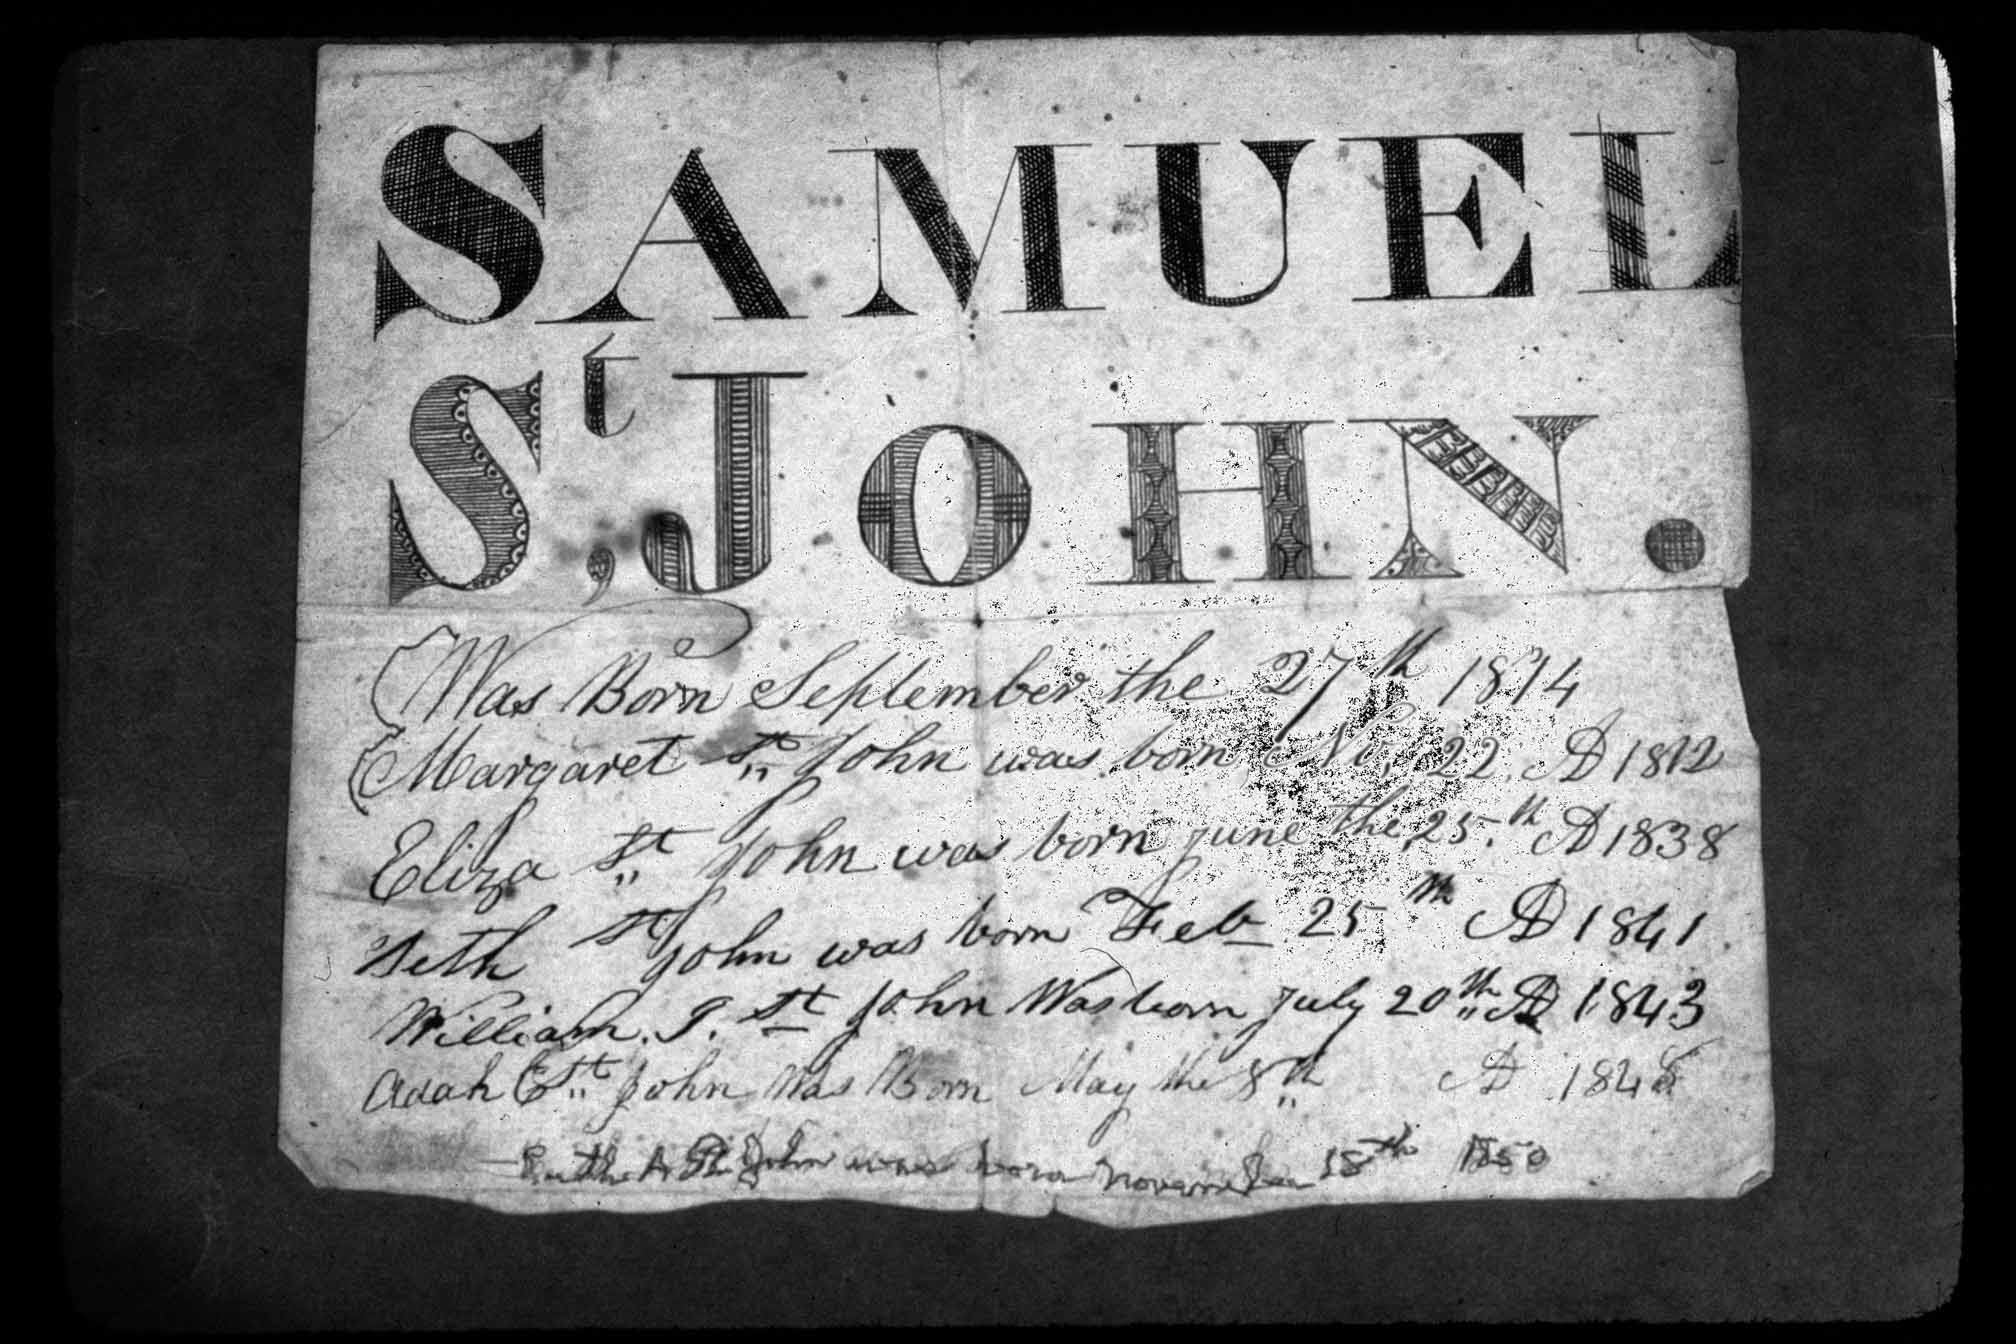 SAMUEL
St, JOHN.
Was Born September the 27th 1814
Margaret St John was born No, 22 AD 1812
Eliza St John was born june the 25th AD 1838
Seth St John was born Feb 25th AD 1841
William. J. St John Was born July 20th AD 1843
Adah E St John Was Born May the 8th AD 184
A St John was born november 18th 1850